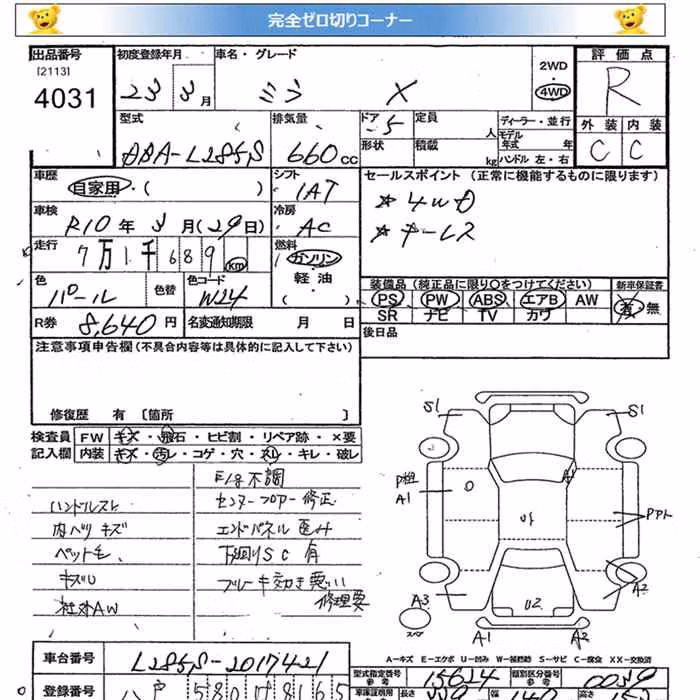 完全ゼロ切りコーナー
出品番号
[2113]
4031
初度登録年月
23 3月
車名・グレード
ミラ X
2WD
4WD
評価点
R
外装 内装
C C
型式
ABA-L285S
排気量
660cc
ドア 5
形状
定員
人
積載
kg
ディーラー・並行
モデル
年式 年
ハンドル 左・右
車歴
自家用・( )
シフト
IAT
セールスポイント (正常に機能するものに限ります)
☆4WD
☆キーレス
車検
R10年3月(29日)
冷房
AC
走行
7万1千689km
燃料
ガソリン
軽油
・( )
色
パール
色替
色コード
W24
装備品(純正品に限り○をつけてください)
新車保証書
PS PW ABS エアB AW
SR ナビ TV カワ
有・無
R券
8,640円
名変通知期限 月 日
後日品
注意事項申告欄(不具合内容等は具体的に記入して下さい)
修復歴 有 [箇所 ]
検査員
記入欄
FW キズ・飛石・ヒビ割・リペア跡・×要
内装 キズ・汚レ・コゲ・穴・スレ・キレ・破レ
E/g不調
ハンドルスレ
センターフロアー修正
内ハリキズ
エンドパネル凹み
ペット毛
下回りSC有
キズU
ブレーキ効き悪い
修理要
社外AW
S1 S1
P担
A1
O
A1
U1
PPI
A2
A3
U2
スペア
A1 A2
A-キズ E-エクボ U-凹み W-補修跡 S-サビ C-腐食 XX-交換済
車台番号
L285S-2017421
型式指定番号
参考
15624
類別区分番号
参考
0039
登録番号
八戸 580 け 8165
長さ
339
幅